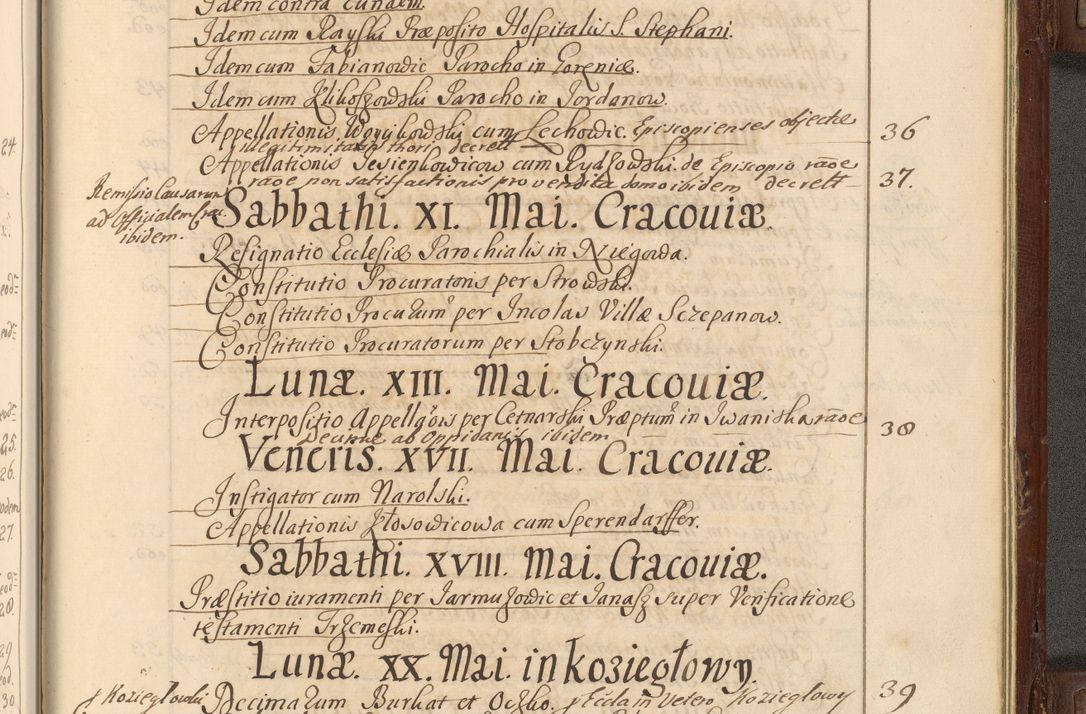 Idem contra Eundem.
Idem cum Rayski Præposito Hospitalis S. Stephani.
Idem cum Fabianowic Parocho in Gorenice.
Idem cum Klikoszowski Parocho in Jordanow.
Appellationis Woycikowski cum Lechowic. Episcopienses objectæ 36
illegitimitatis thori decrett
Appellationis Jesienkowicow cum Rydzowski. de Episcopio rãoe 37.
rãoe non satisfactionis pro vendita domo ibidem decrett
Remissio Causarum
ad Officialem Crac.
ibidem.
Sabbathi. XI. Mai. Cracouiæ.
Resignatio Ecclesiæ Parochialis in Niegowa.
Constitutio Procuratoris per Strowski.
Constitutio Procurum per Incolas Villæ Sczepanow.
Constitutio Procuratorum per Stobczynski.
Lunæ. XIII. Mai. Cracouiæ.
Interpositio Appellãois per Cetnarski Præptum in Iwaniska rãoe 38
Decimæ ab Oppidanis ibidem
Veneris. XVII. Mai. Cracouiæ.
Instigator cum Narolski.
Appellationis Kłosowicowa cum Sperendarffer.
Sabbathi. XVIII. Mai. Cracouiæ.
Præstitio iuramenti per Jarmuzowic et Janasz super Verificatione
testamenti Trzemeski.
Lunæ. XX. Mai. in koziegłowy.
Decimarum Burkat et Oczko. Eccla in Vetero Kozieglowy 39
24.
25.
26.
27.
28.
29
30